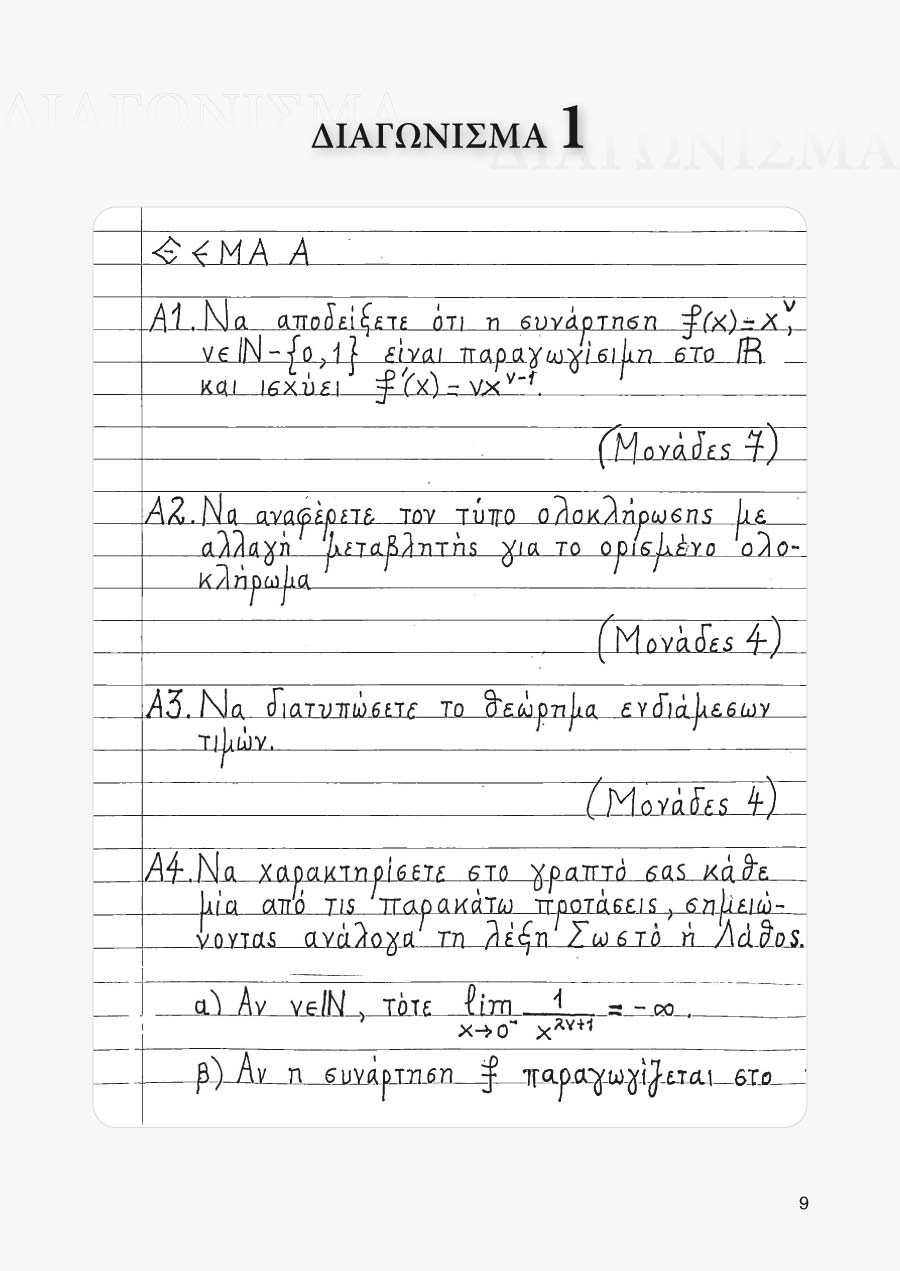 ΔΙΑΓΩΝΙΣΜΑ
ΔΙΑΓΩΝΙΣΜΑ 1
ΔΙΑΓΩΝΙΣΜΑ
ΘΕΜΑ Α
Α1. Να αποδείξετε ότι η συνάρτηση f(x)=x^ν,
ν∈ℕ-{0,1} είναι παραγωγίσιμη στο ℝ
και ισχύει f'(x)=νx^{ν-1}.
(Μονάδες 7)
Α2. Να αναφέρετε τον τύπο ολοκλήρωσης με
αλλαγή μεταβλητής για το ορισμένο ολο-
κλήρωμα
(Μονάδες 4)
Α3. Να διατυπώσετε το θεώρημα ενδιάμεσων
τιμών.
(Μονάδες 4)
Α4. Να χαρακτηρίσετε στο γραπτό σας κάθε
μία από τις παρακάτω προτάσεις, σημειώ-
νοντας ανάλογα τη λέξη Σωστό ή Λάθος.
α) Αν ν∈ℕ, τότε lim_{x→0⁻} 1/x^{2ν+1} = -∞.
β) Αν η συνάρτηση f παραγωγίζεται στο
9